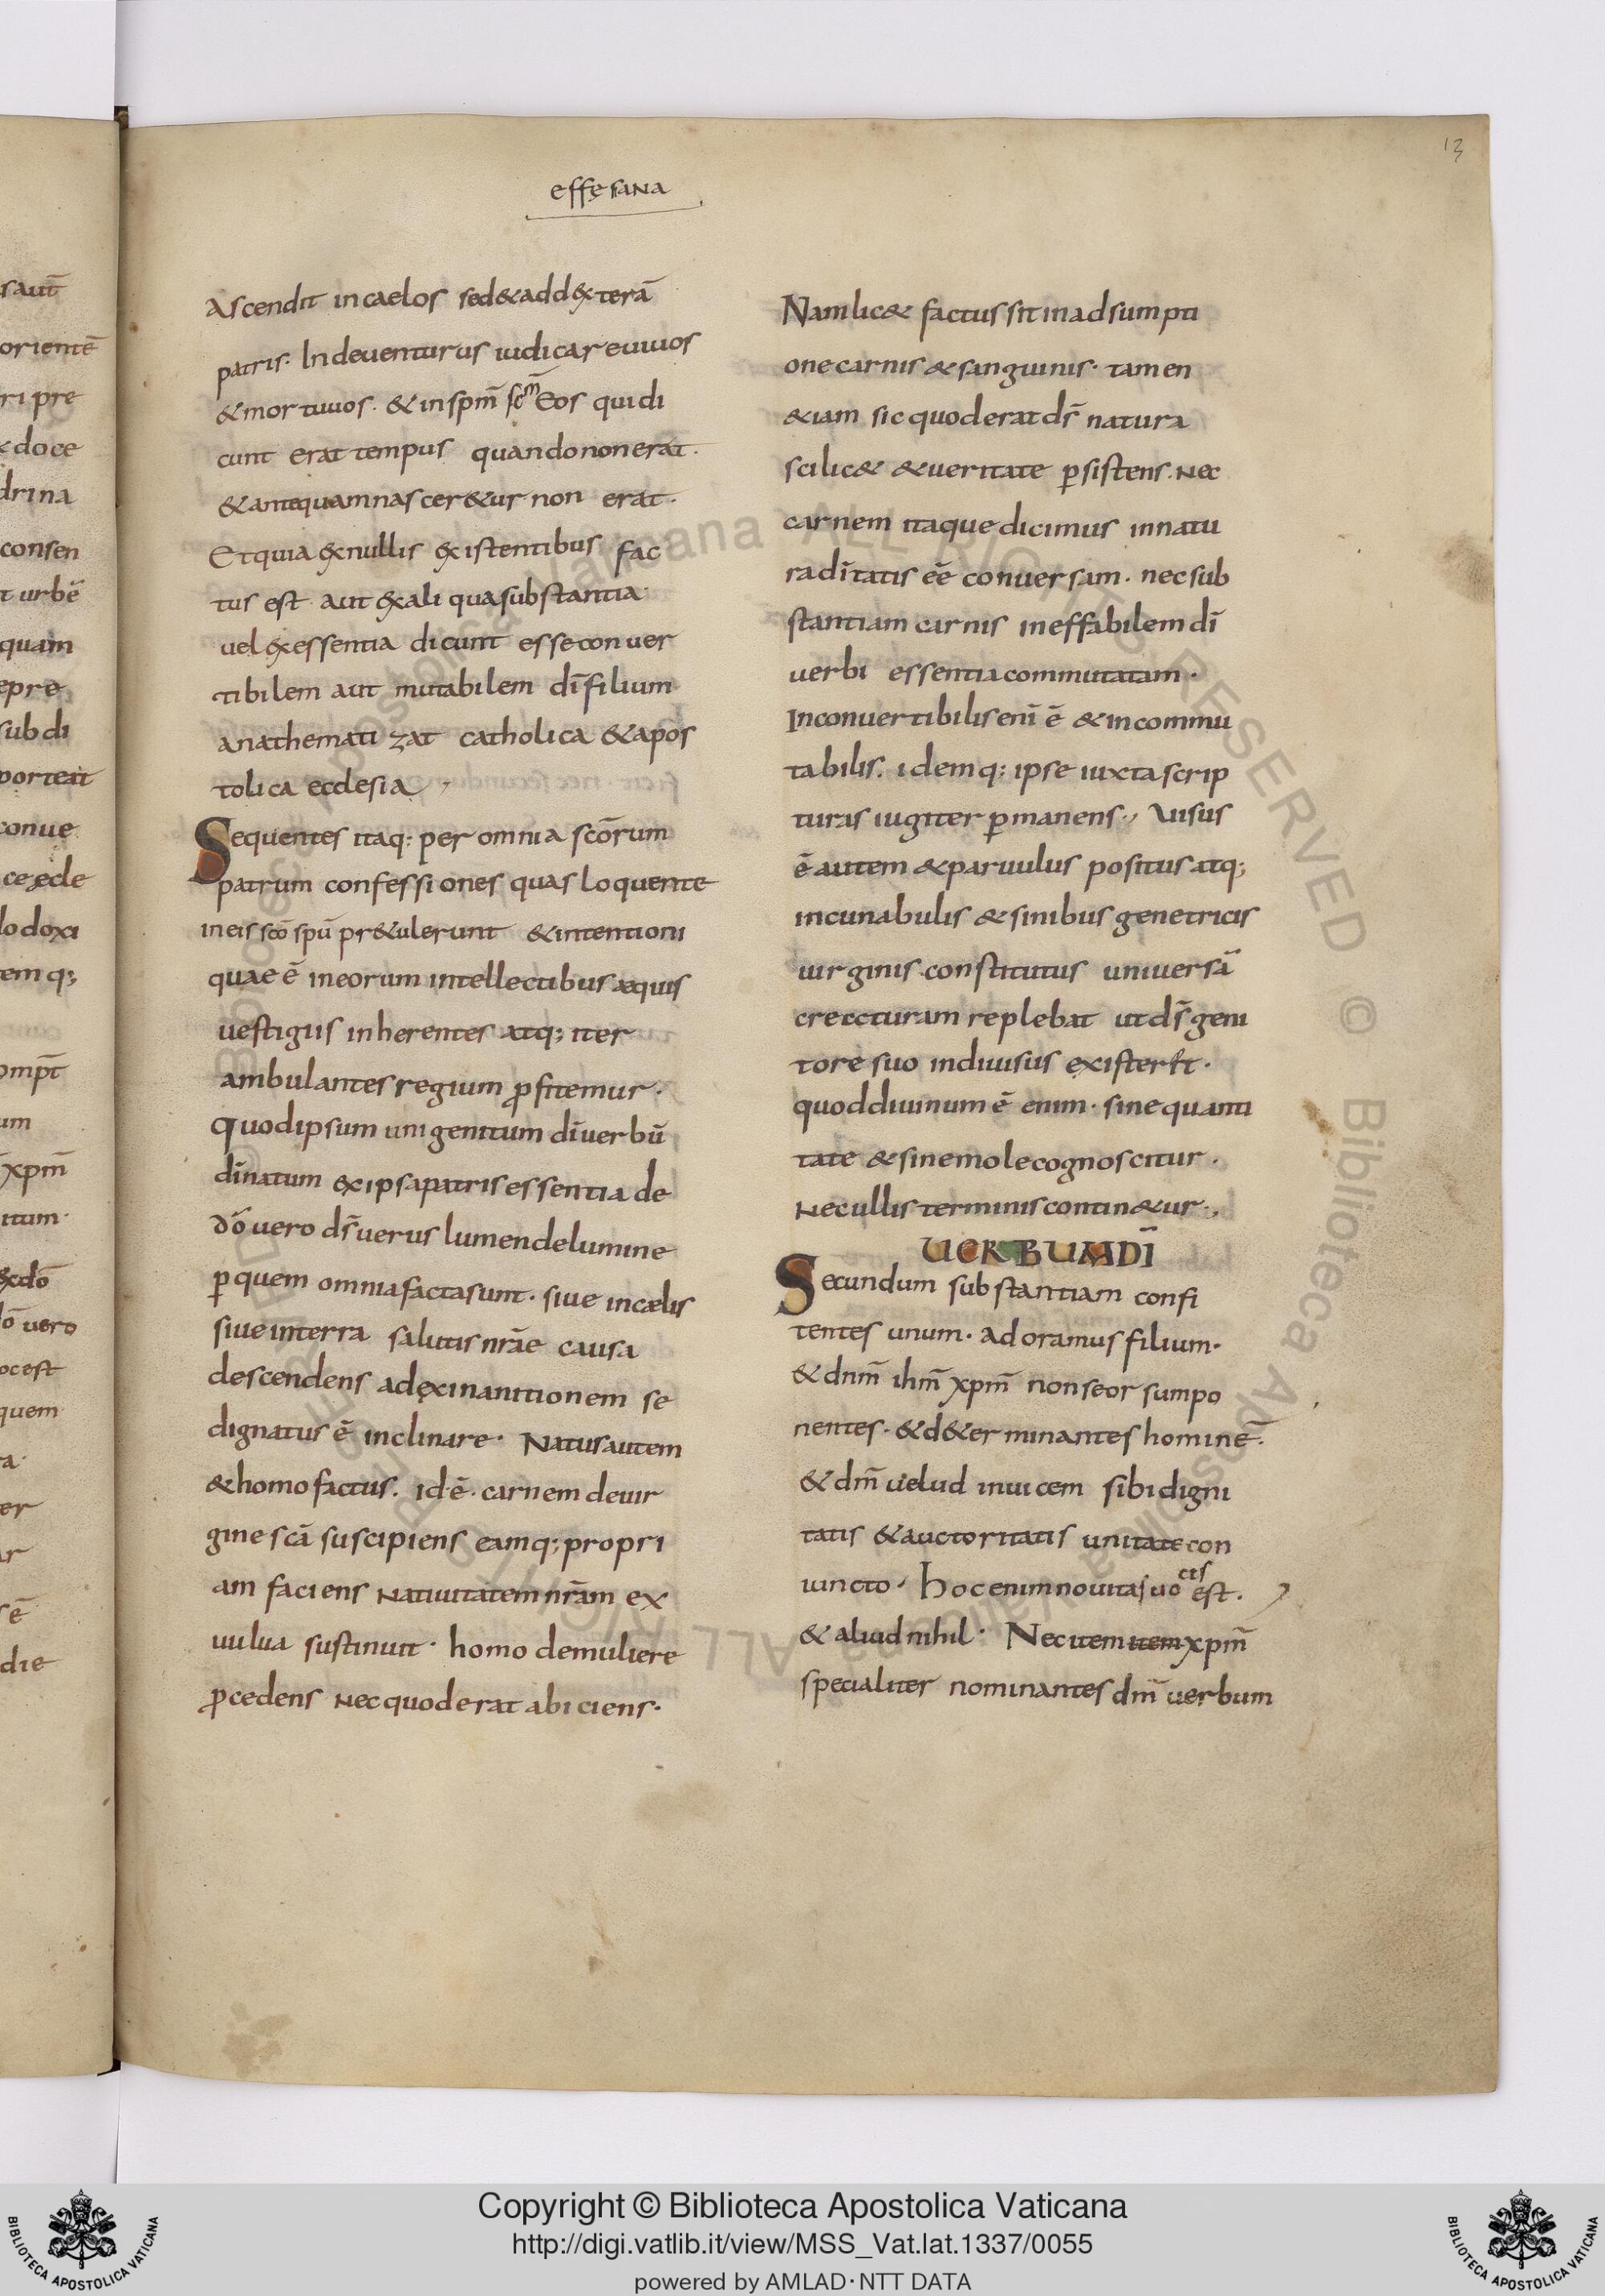 13
effęsana
saut̄
orientē
ri pre
& doce
drina
consen
t urbē
quam
epre
sub di
porteat
conue
ce ęcle
lodoxi
temq;
ompt̄
um
xpm̄
itum·
&dō
dō uero
oc est
quem
ra·
er
ar
sē
die
Ascendit in caelos sed & ad d&terā
patris· Inde uenturus iudicare uiuos
& mortuuos· & in spm̄ scm̄ Eos qui di
cunt erat tempus quando non erat·
& antequam nascer&ur non erat·
Et quia ex nullis existentibus fac
tus est aut ex aliqua substantia·
uel ex essentia dicunt esse conuer
tibilem aut mutabilem dī filium
anathematizat catholica & apos
tolica ecclesia
Sequentes itaq: per omnia scōrum
patrum confessiones quas loquente
in eis scō spū pr&ulerunt & intentioni
quae ē in eorum intellectibus æquis
uestigiis inherentes atq; iter
ambulantes regium ꝓfitemur·
Quod ipsum unigenitum dī uerbū
dī natum ex ipsa patris essentia de
dō uero ds̄ uerus lumen de lumine
ꝑ quem omnia facta sunt· siue in cælis
siue in terra salutis nrāe causa
descendens ad exinanitionem se
dignatus ē inclinare· Natus autem
& homo factus· id·ē· carnem de uir
gine scā suscipiens eamq; propri
am faciens natiuitatem nrām ex
uulua sustinuit· homo de muliere
ꝓcedens nec quod erat abiciens·
Nam lic& factus sit in adsumpti
one carnis & sanguinis· tamen
&iam sic quod erat ds̄ natura
scilic& & ueritate ꝑsistens· nec
carnem itaque dicimus in natu
ra dītatis eē conuersam· nec sub
stantiam carnis ineffabilem dī
uerbi essentia commutatam·
Inconuertibilis enī ē & incommu
tabilis· idemq: ipse iuxta scrip
turas iugiter ꝑmanens·, Uisus
ē autem & paruulus positus atq;
in cunabulis & sinibus genetricis
uirginis constitutus uniuersā
creccturam replebat ut ds̄ geni
tore suo indiuisus existeret·
quod diuinum ē enim· sine quanti
tate & sine mole cognoscitur·
Nec ullis terminis contin&ur·,
UERBUM DĪ
Secundum substantiam confi
tentes unum· adoramus filium·
& dnm̄ ihm̄ xpm̄ non seorsum po
nentes· & d&erminantes hominē·
& dm̄ uelud inuicem sibi digni
tatis & auctoritatis unitate con
iuncto· Hoc enim nouitas uocis est·
& aliud nihil· Nec item item xpm̄
specialiter nominantes dm̄ uerbum
Copyright © Biblioteca Apostolica Vaticana
http://digi.vatlib.it/view/MSS_Vat.lat.1337/0055
powered by AMLAD·NTT DATA
BIBLIOTECA APOSTOLICA VATICANA
BIBLIOTECA APOSTOLICA VATICANA